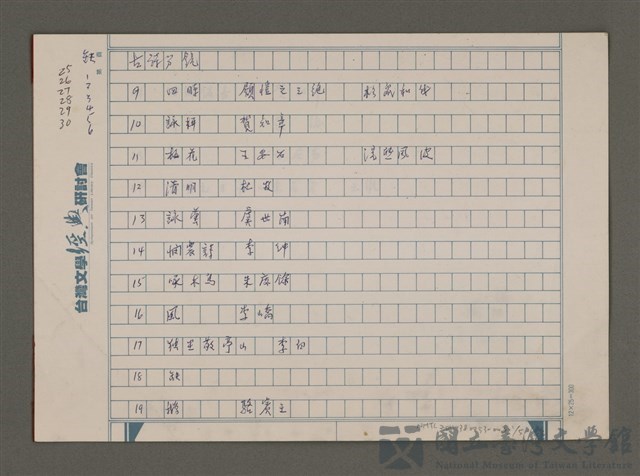 缺 1 2 3 4 5 6
25 26 27 28 29 30
台灣文學經典研討會
古詩
9 四時 顧愷之
10 詠鵝 賀知章
11 梅花 王安石 風波
12 清明 杜牧
13 詠螢 虞世南
14 憫農詩 李紳
15 啄木鳥 朱慶餘
16 風 李嶠
17 獨坐敬亭山 李白
18 缺
19 鵝 駱賓王
12×25=300
國立臺灣文學館
National Museum of Taiwan Literature